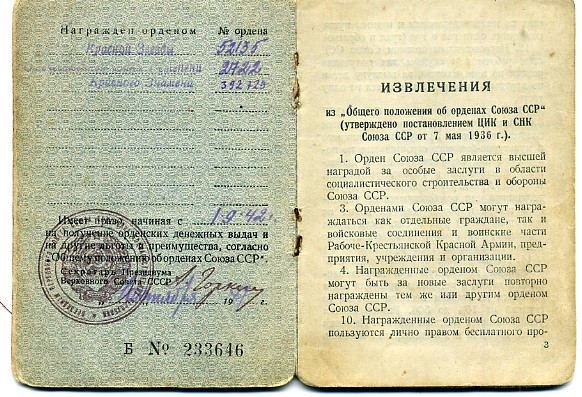 Награжден орденом № ордена
Красной Звезды 52135
степени 2722
Красного Знамени 392729
Имеет право, начиная с 1.9.42г
на получение орденских денежных выдач и
на другие льготы и преимущества, согласно
"Общему положению об орденах СССР".
Секретарь Президиума
Верховного Совета СССР А Горкин
19 г.
Б № 233646
ИЗВЛЕЧЕНИЯ
из „Общего положения об орденах Союза ССР“
(утверждено постановлением ЦИК и СНК
Союза ССР от 7 мая 1936 г.).
1. Орден Союза ССР является высшей
наградой за особые заслуги в области
социалистического строительства и обороны
Союза ССР.
3. Орденами Союза ССР могут награж-
даться как отдельные граждане, так и
войсковые соединения и воинские части
Рабоче-Крестьянской Красной Армии, пред-
приятия, учреждения и организации.
4. Награжденные орденом Союза ССР
могут быть за новые заслуги повторно
награждены тем же или другим орденом
Союза ССР.
10. Награжденные орденом Союза ССР
пользуются лично правом бесплатного про-
3